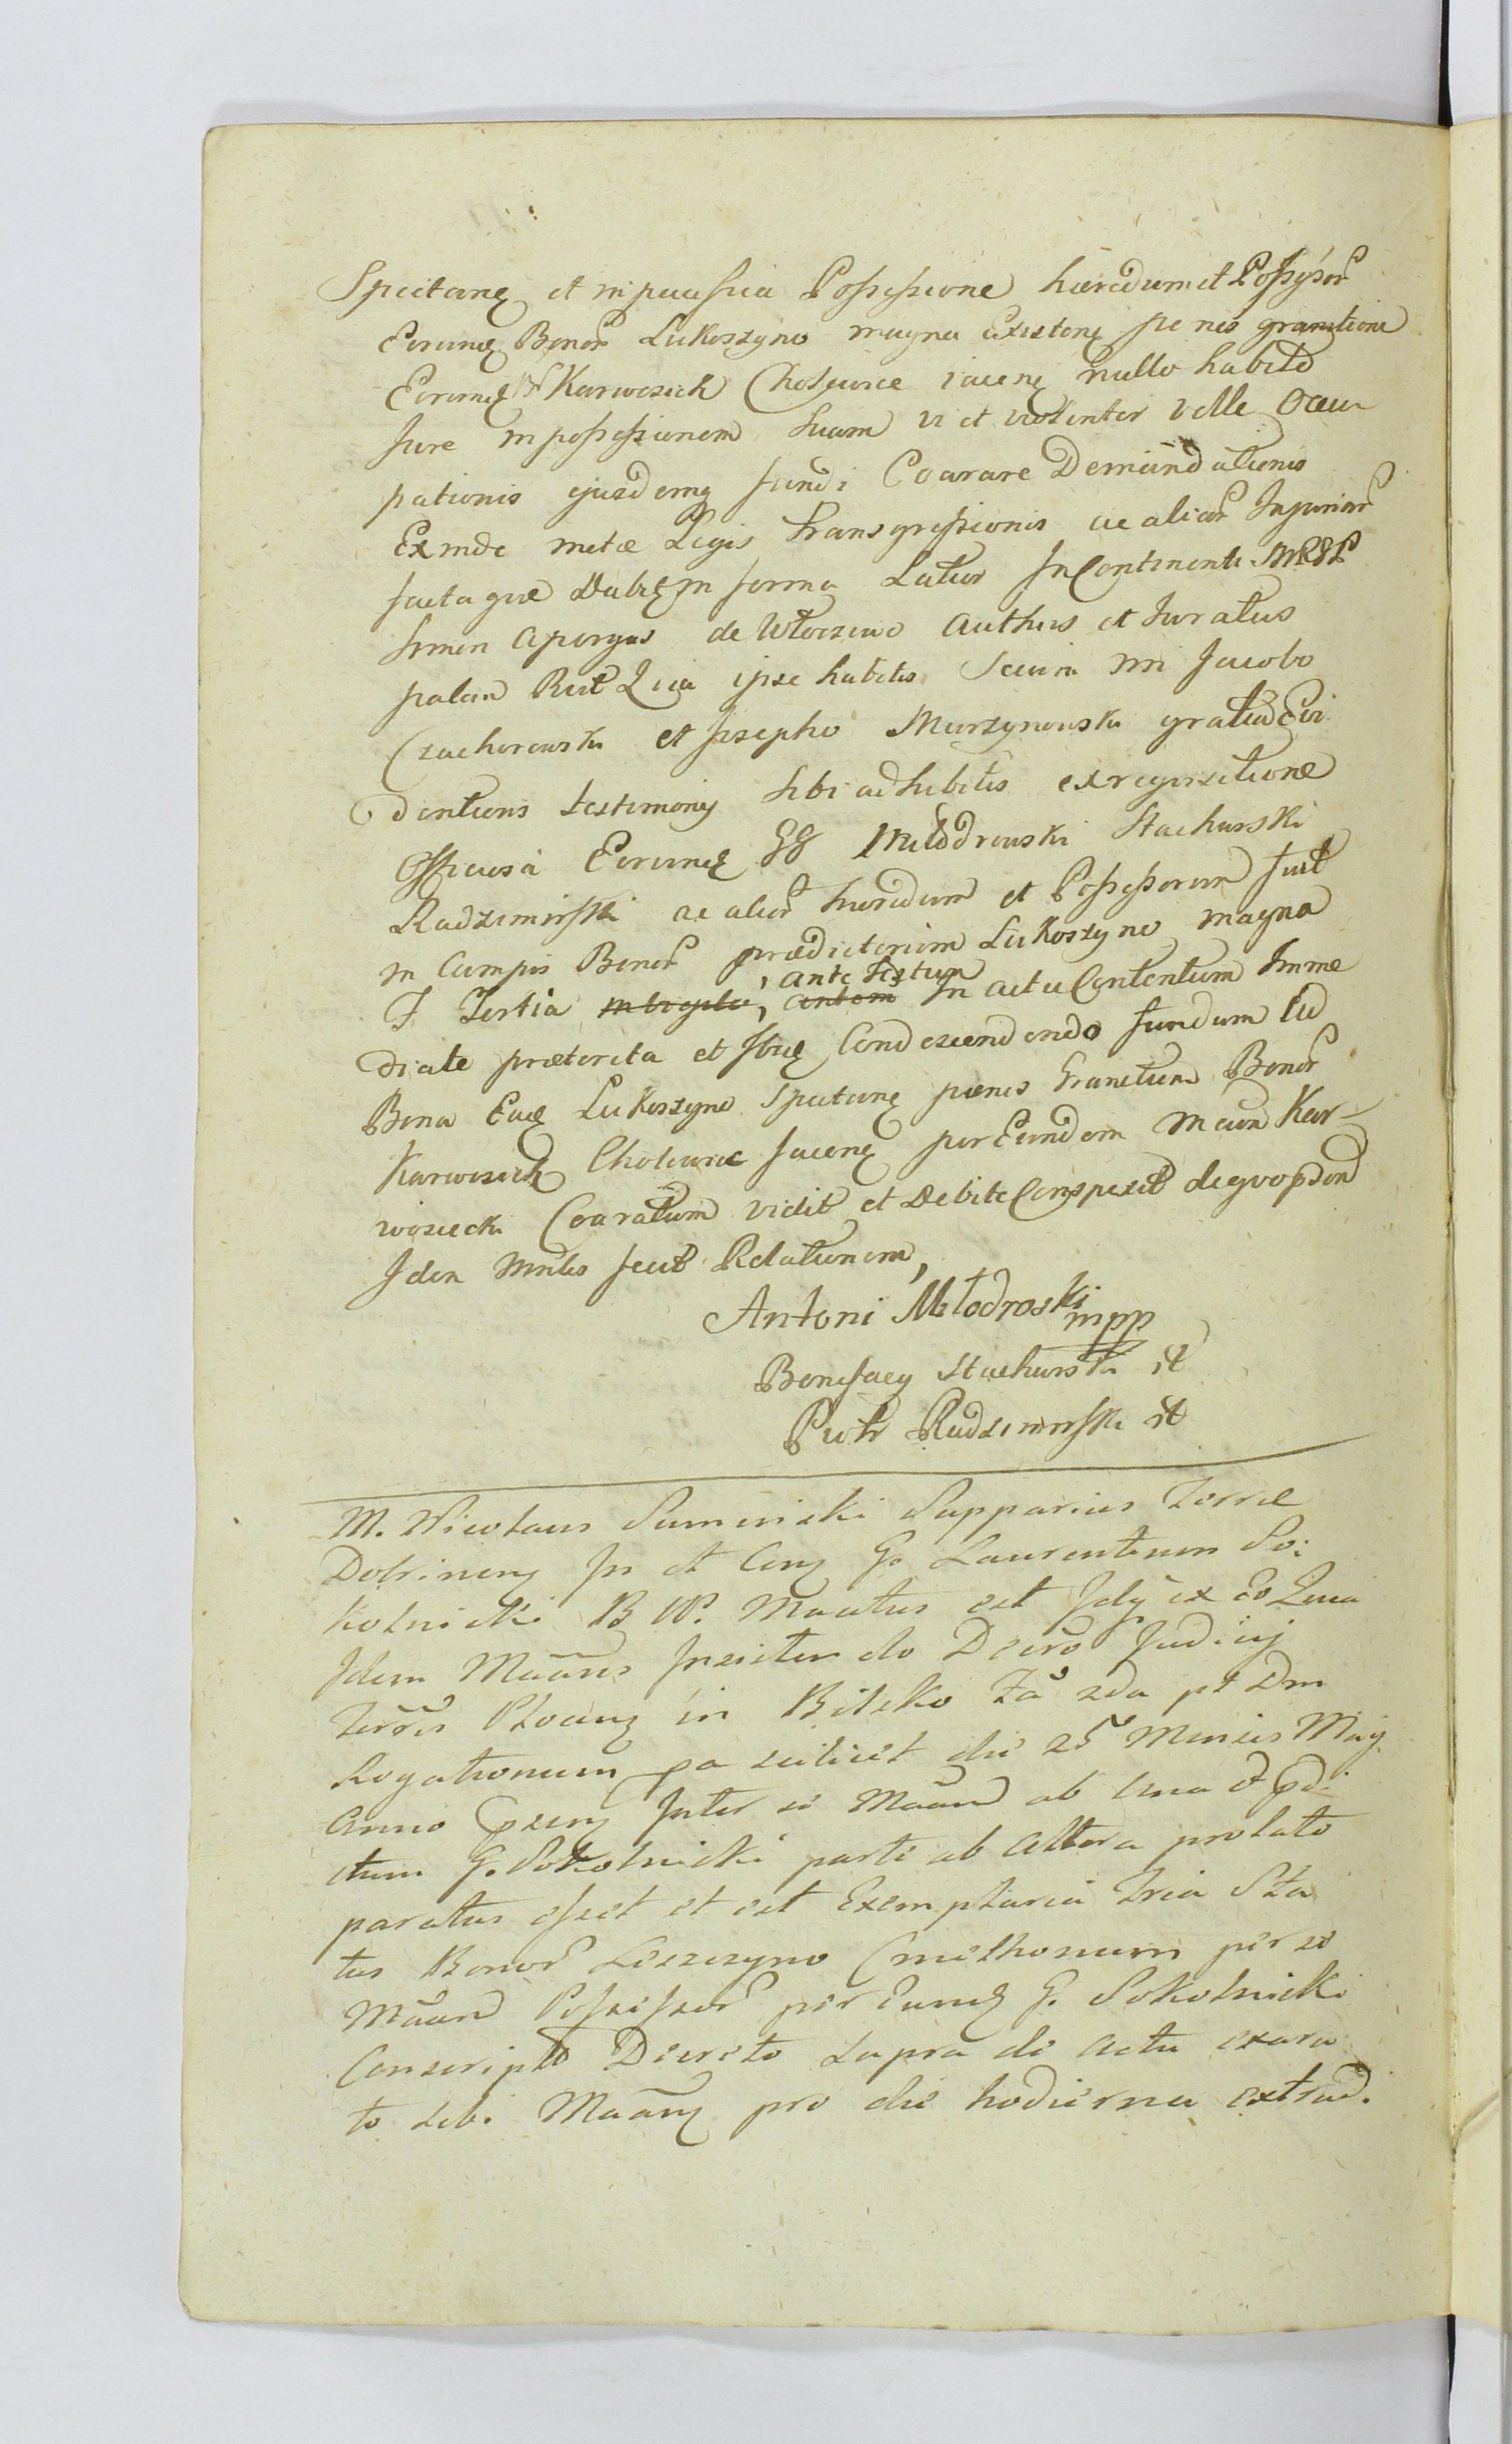 Spectanẹ et in pacifica Possessione hæredum et Possessor
Eorumẹ Bonor Lukoszyno magna Existenẹ penes granitiem
Eorumẹ Karwosieck Cholewice iacenẹ nullo habito
Jure in possessionem suam vi et violenter velle Occu
pationis ejusdemq fundi Coarare Demandationis
Exinde metæ Legis transgressionis ac alior Injurior
factaque Dabit in forma Latior In Continenti
de Włoczewo Authus et Juratus
palam Quia ipse habitis Secum Jacobo
Czachorowski et Josepho Murzynowski gratia Evi
dentioris testimony sibi adhibitis ex requisitione
Officiosa Eorumẹ GG Młodrowski Stachurski
Radzimiński ac alior hæredum et Possessorum fuit
in Campis Bonor prædictorum Lukoszyno magna
F Tertia ante Festum In actu Contentum Imme
diate præterita et Ibiẹ Condescendendo fundum ad
Bona Eaẹ Lukoszyno Spectanẹ penes Granitiem Bonor
Karwosieck Cholewice Jacenẹ per Eundem Mcum Kar-
wosiecki Coaratum vidit et Debite Conspexit de quo
Idem Mnlis fecit Relationem,
Antoni Młodroski mpp
Bonifacy Stachurski
Piotr Radzimiński
M. Nicolaus Suminski Dapparius Terræ
Dobrinenẹ In et Conẹ G. Laurentium So:
kolnicki B W. Mactus est Idẹ ex eo Quia
Idem Mããns Insistendo Decro Judicij
Terrris Plocenẹ in Bilsko ƶda pt Dm
Rogationum pa scilicet die 25 Mensis Maij
Anno pzenẹ Inter se Mãand ab una et pdi
ctum G. Sokolnicki parte ab Altera prolato
paratus esset et est Exemplaria Tria Sta
tus Bonor Leszczyno Cmethonum per se
Mãand Possessor per Eumẹ G. Sokolnicki
Conscripto Decreto supra de actu exara
to sibi Mããnẹ pro die hodierna extrad.